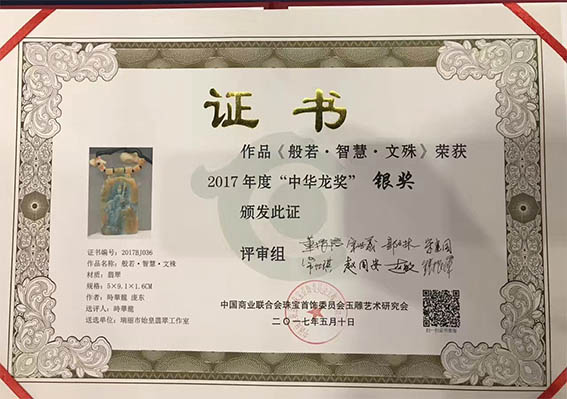 证书
作品《般若·智慧·文殊》荣获
2017年度“中华龙奖” 银奖
颁发此证
评审组
证书编号：2017BJ036
作品名称：般若·智慧·文殊
材质：翡翠
规格：5×9.1×1.6CM
作者：時華龍 庞东
选评人：時華龍
送选单位：瑞丽市始皇翡翠工作室
中国商业联合会珠宝首饰委员会玉雕艺术研究会
二〇一七年五月十日